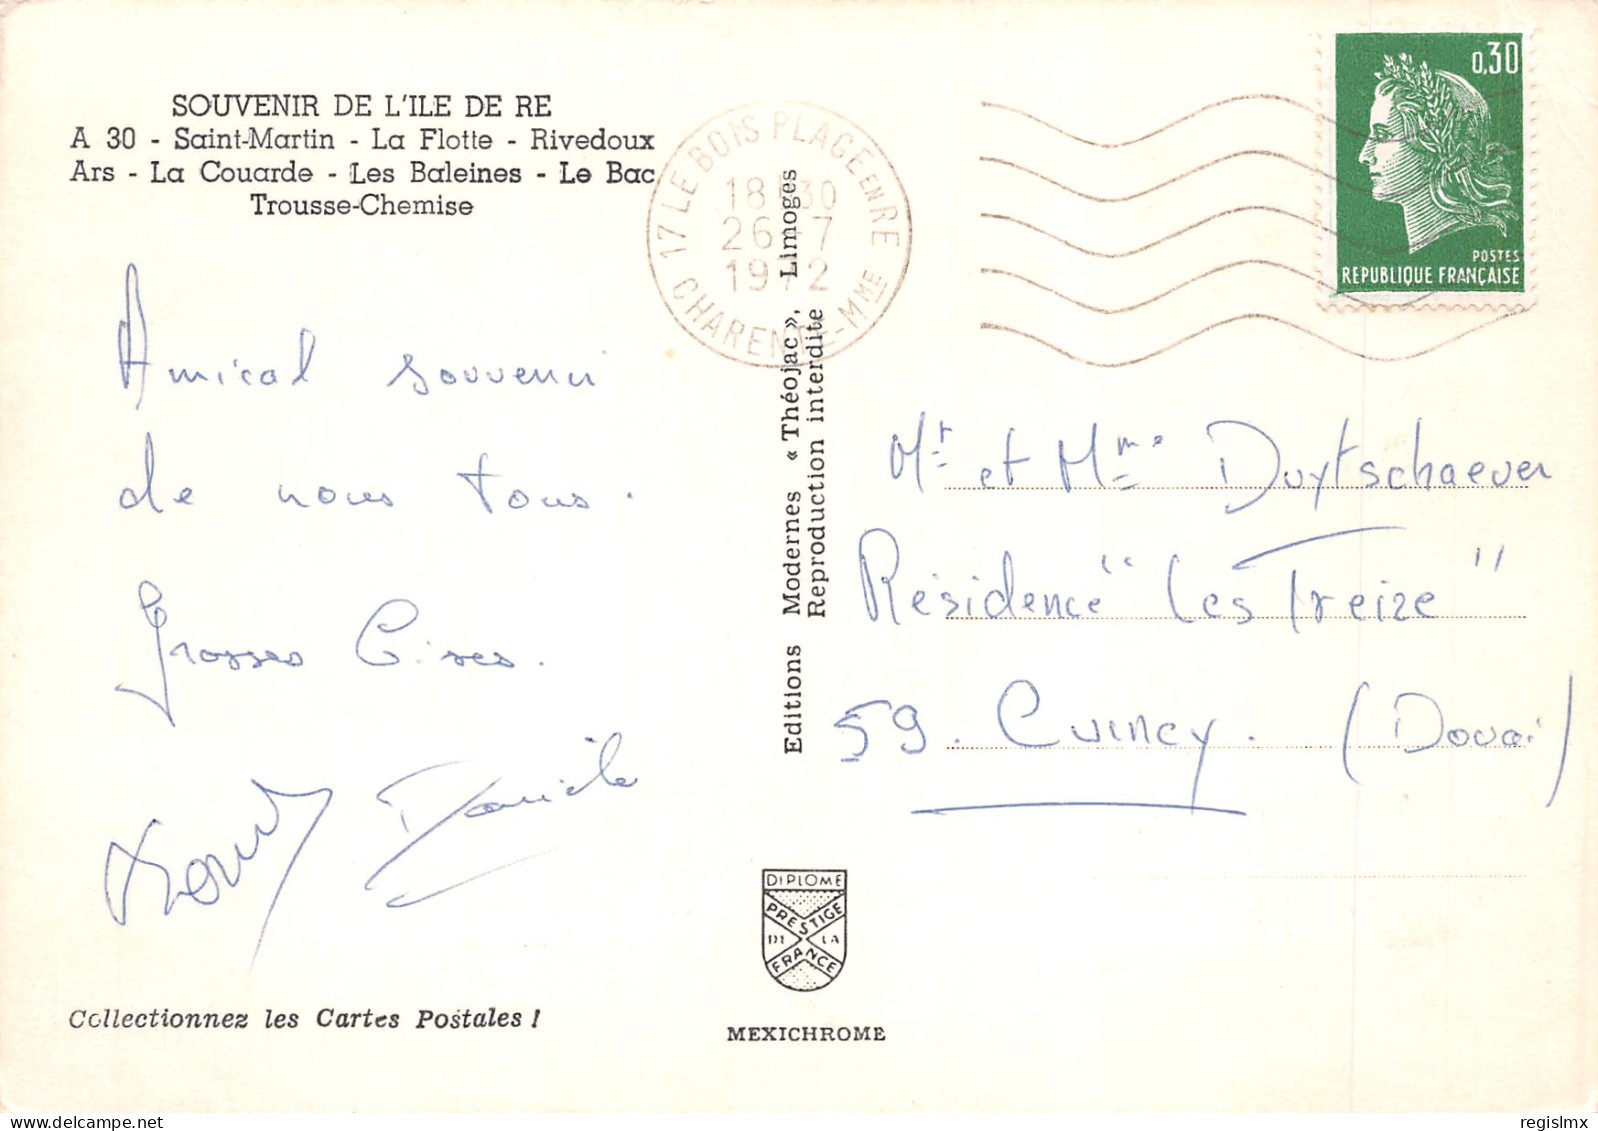 SOUVENIR DE L'ILE DE RE
A 30 - Saint-Martin - La Flotte - Rivedoux
Ars - La Couarde - Les Baleines - Le Bac
Trousse-Chemise
17 LE BOIS PLAGE EN RE
18H30
26-7
1972
CHARENTE-MME
0,30
POSTES
REPUBLIQUE FRANÇAISE
Amical souvenir
de nous tous.
Grosses Bises.
Danièle
Editions Modernes « Théojac », Limoges
Reproduction interdite
Mr et Mme Duytschaever
Résidence "Les Treize"
59. Cuincy. (Douai)
DIPLOME
PRESTIGE
DE LA
FRANCE
Collectionnez les Cartes Postales !
MEXICHROME
regislmx